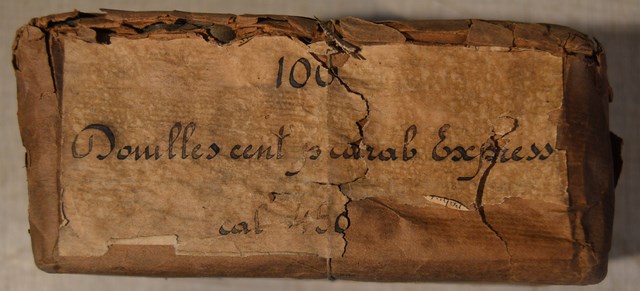 100
Douilles cent p carab Express
cal 450